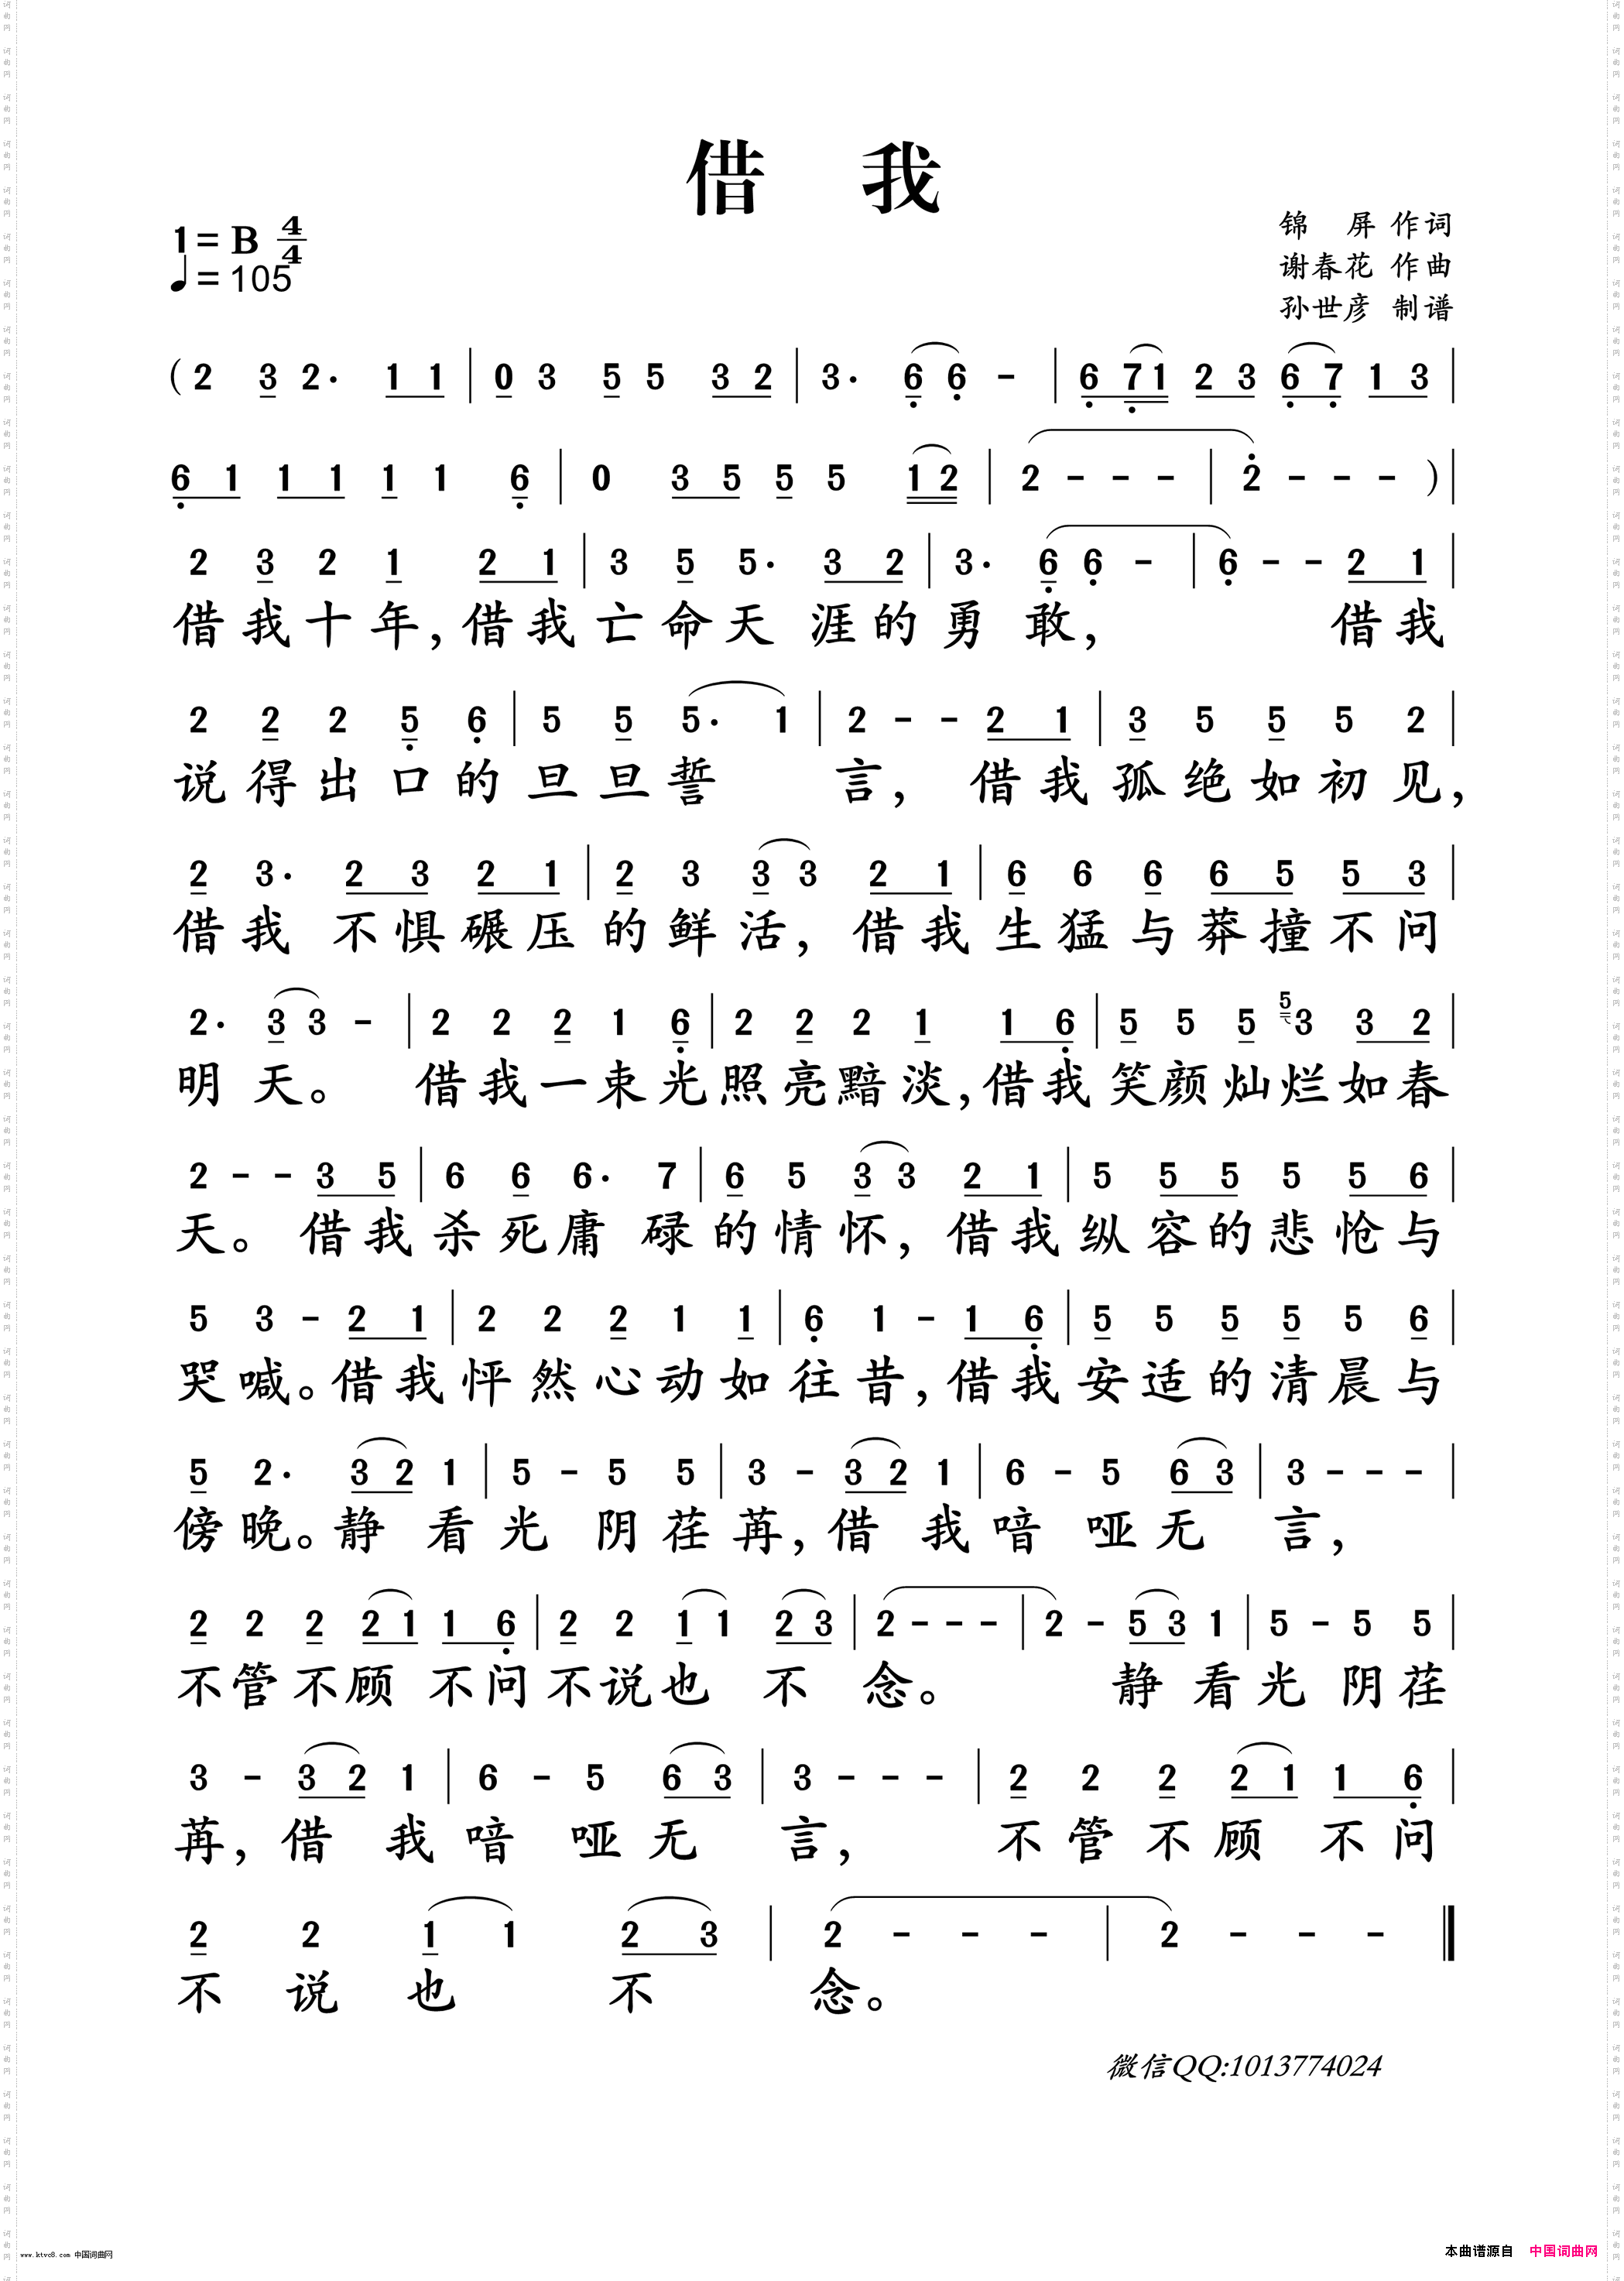 借 我
1= B 4/4
♩= 105
锦 屏 作词
谢春花 作曲
孙世彦 制谱
( 2 3 2· 1 1 | 0 3 5 5 3 2 | 3· 6 6 - | 6 7 1 2 3 6 7 1 3 |
6 1 1 1 1 1 6 | 0 3 5 5 5 1 2 | 2 - - - | 2 - - - ) |
2 3 2 1 2 1 | 3 5 5· 3 2 | 3· 6 6 - | 6 - - 2 1 |
借我十年,借我亡命天涯的勇敢, 借我
2 2 2 5 6 | 5 5 5· 1 | 2 - - 2 1 | 3 5 5 5 2 |
说得出口的旦旦誓 言, 借我孤绝如初见,
2 3· 2 3 2 1 | 2 3 3 3 2 1 | 6 6 6 6 5 5 3 |
借我 不惧碾压的鲜活, 借我生猛与莽撞不问
2· 3 3 - | 2 2 2 1 6 | 2 2 2 1 1 6 | 5 5 5 5 3 3 2 |
明天。 借我一束光照亮黯淡,借我笑颜灿烂如春
2 - - 3 5 | 6 6 6· 7 | 6 5 3 3 2 1 | 5 5 5 5 5 6 |
天。 借我杀死庸碌的情怀, 借我纵容的悲怆与
5 3 - 2 1 | 2 2 2 1 1 | 6 1 - 1 6 | 5 5 5 5 5 6 |
哭喊。借我怦然心动如往昔,借我安适的清晨与
5 2· 3 2 1 | 5 - 5 5 | 3 - 3 2 1 | 6 - 5 6 3 | 3 - - - |
傍晚。静看光阴荏苒,借我喑哑无言,
2 2 2 2 1 1 6 | 2 2 1 1 2 3 | 2 - - - | 2 - 5 3 1 | 5 - 5 5 |
不管不顾 不问不说也 不 念。 静看光阴荏
3 - 3 2 1 | 6 - 5 6 3 | 3 - - - | 2 2 2 2 1 1 6 |
苒,借我喑哑无言, 不管不顾 不问
2 2 1 1 2 3 | 2 - - - | 2 - - - ‖
不 说 也 不 念。
微信QQ:1013774024
www.ktvc8.com 中国词曲网
本曲谱源自 中国词曲网